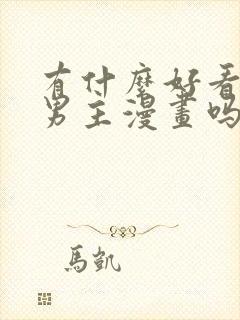 有什麼好看
男主漫畫嗎
馬凱